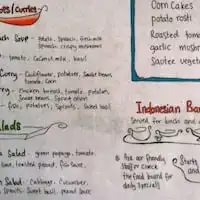 ots/Curries
ch Soup - potato, Spinach, fresh milk
Spinach, crispy mushrooms
- tomato, Coconut milk, basil
Curry - Cauliflower, potatoes, Snake beans,
tomato, corn
Curry - Chicken breast, tomato, potatoes
Snake beans, Spring onion
- fish, potatoes, Sprouts, Sweet basil
alads
Salad - green papaya, tomato,
toasted ground, fish sauce,
Salad - Cabbage, Cucumber,
Sweet basil, peanut sauce
Corn Cakes
potato rosti
Roasted tomato
garlic mushr
Sautee veget
Indonesian Ba
Served for lunch and d
Ask our friendly
Staff or check
the food board for
daily Specials
Starts
and